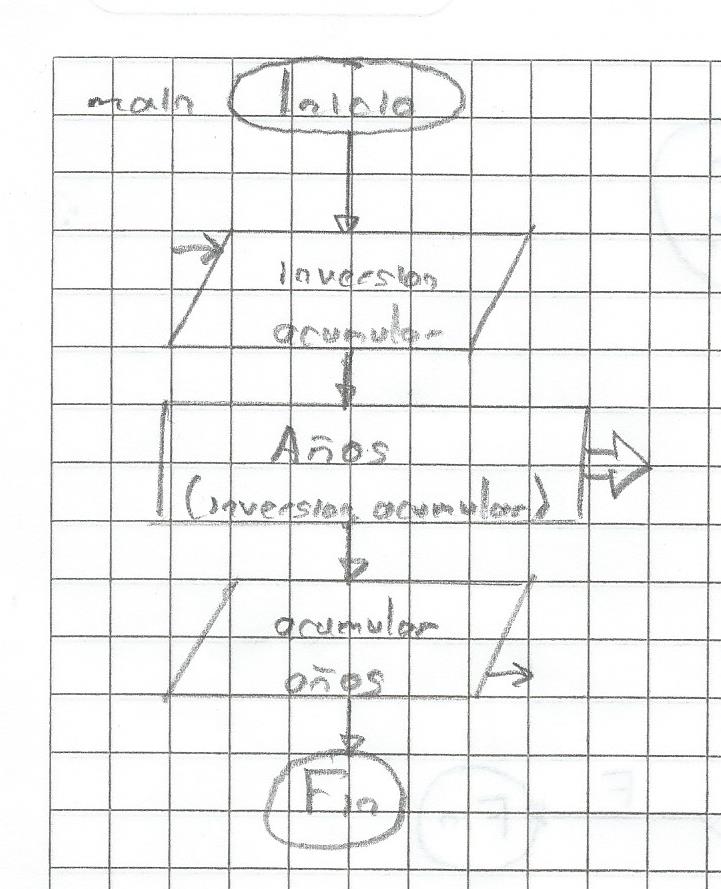 main
Inicio
inversion
acumular
Años
(inversion acumular)
acumular
años
Fin